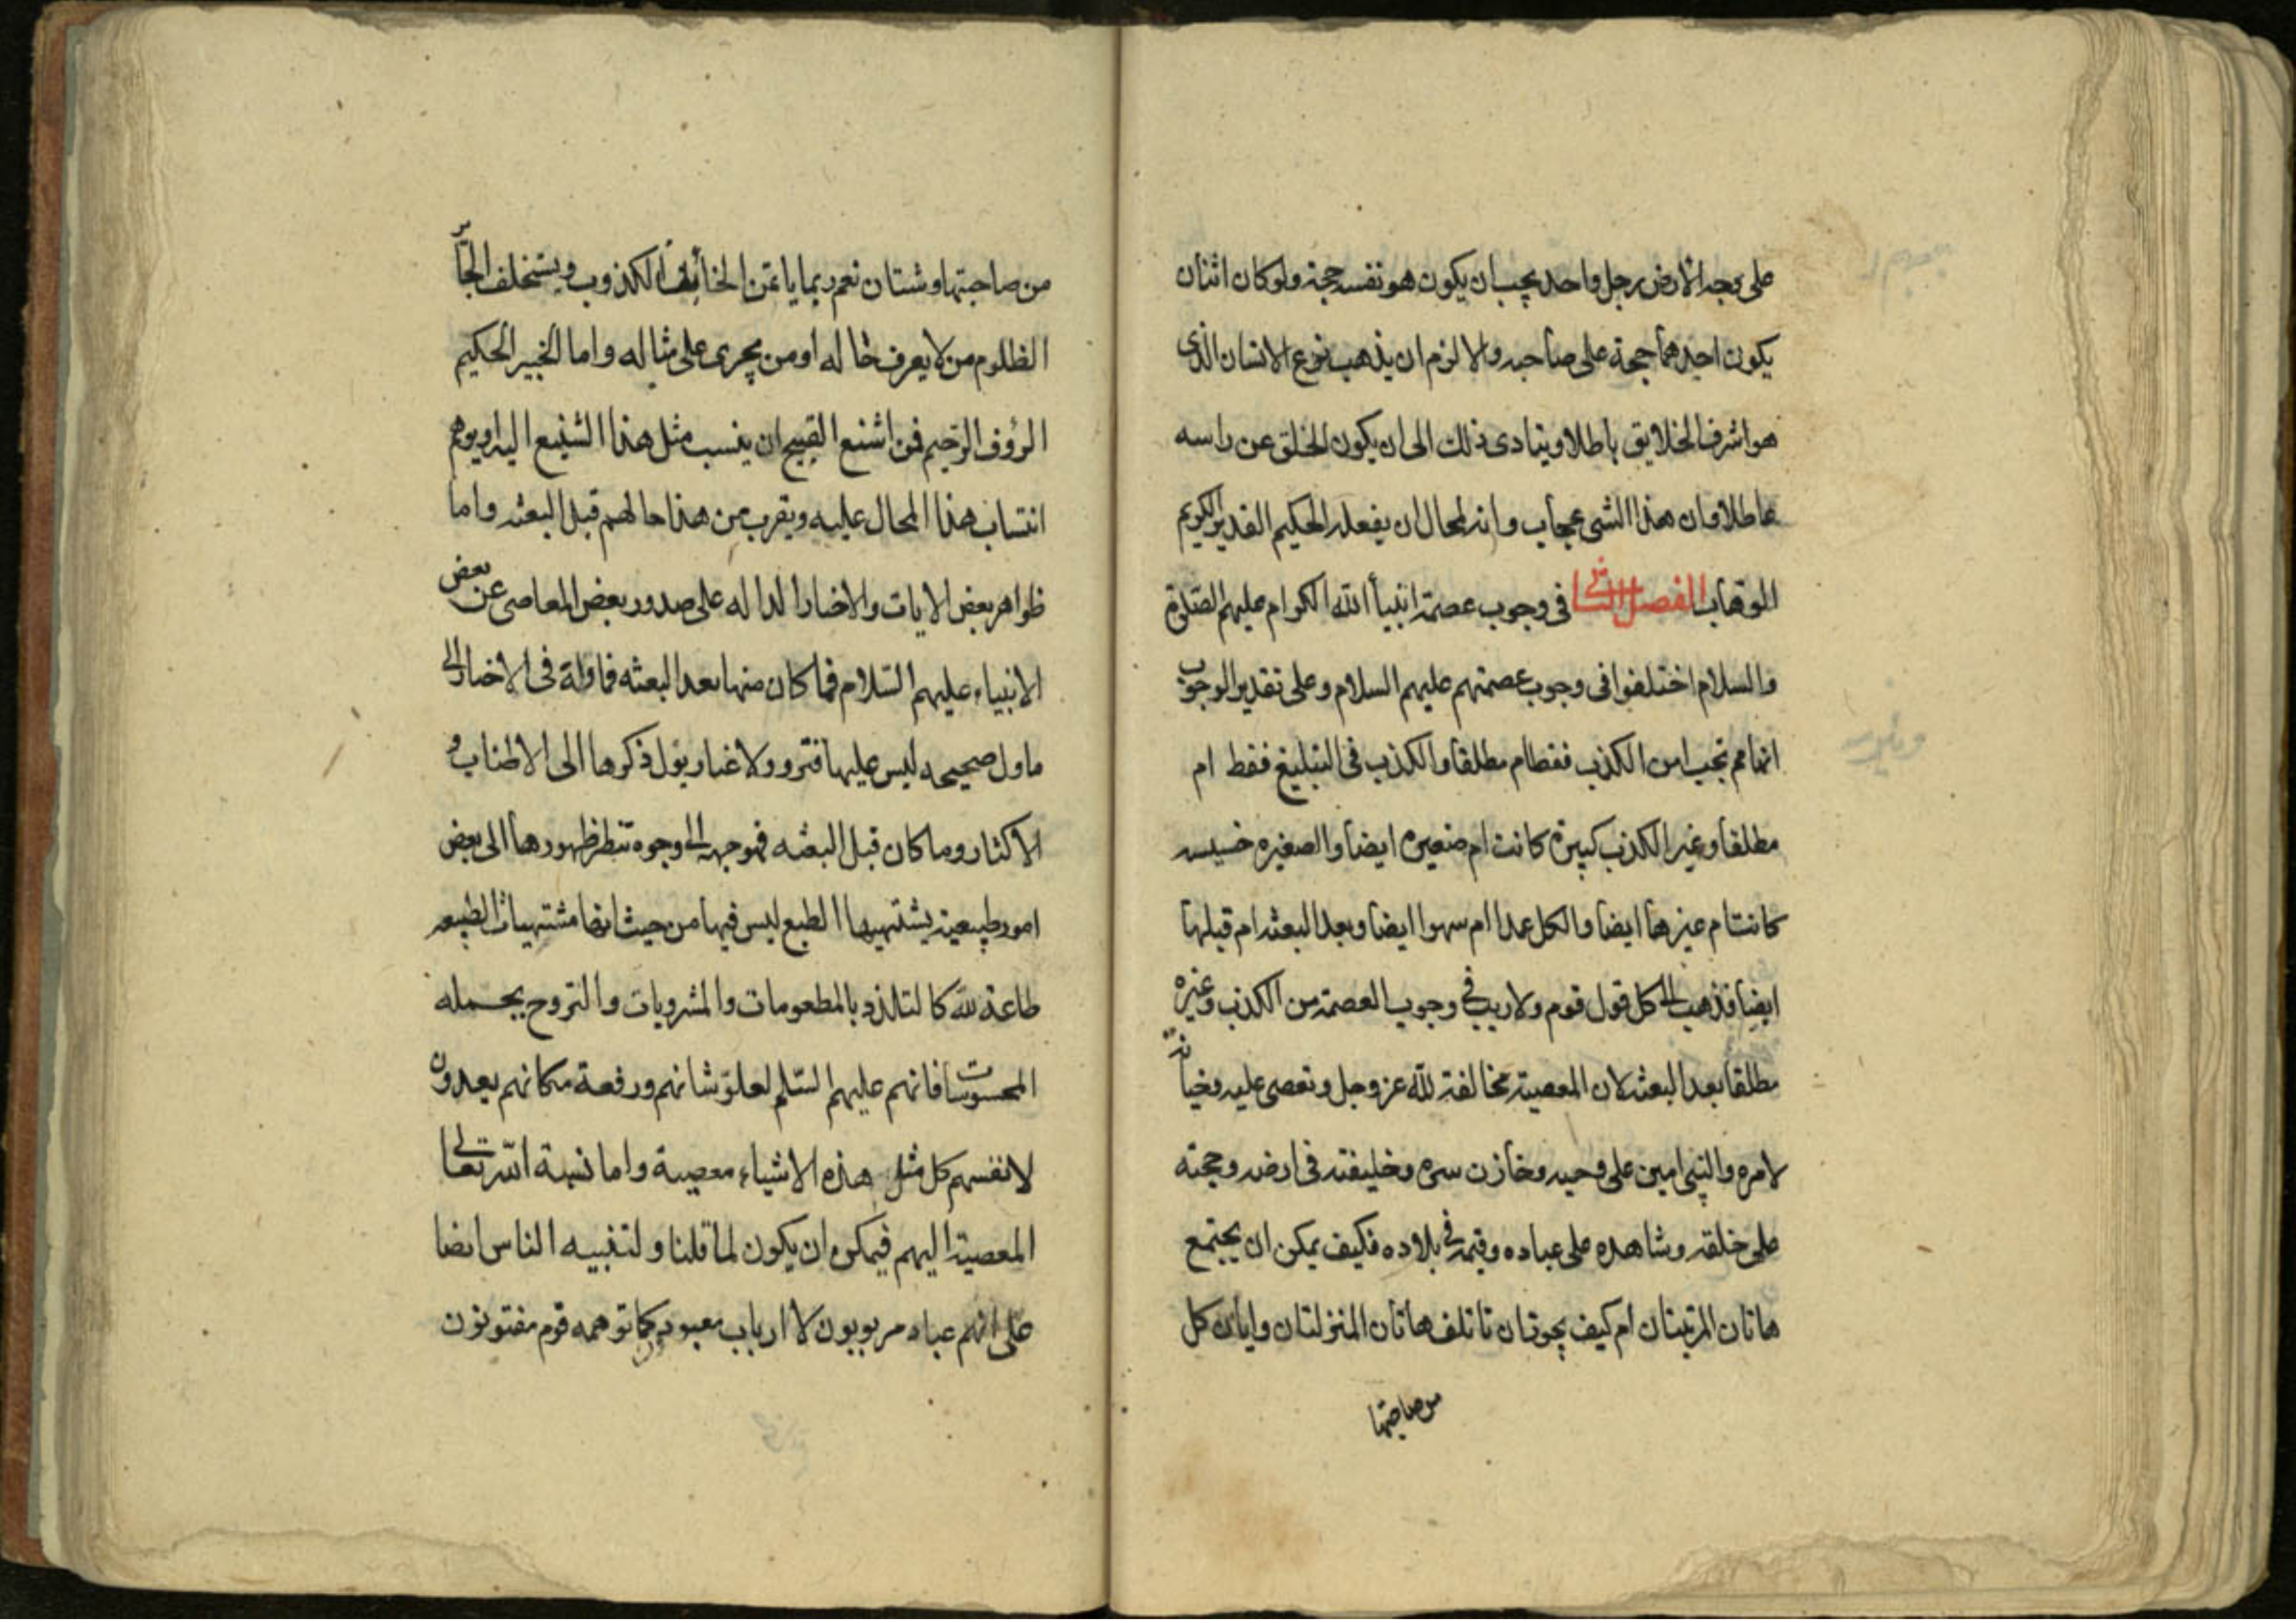 على وجه الارض رجل واحد يجب ان يكون هو نفسه حجة ولو كان اثنان
يكون احدهما حجة على صاحبه والا لزم ان يذهب نوع الانسان الذى
هو اشرف الخلايق باطلا ويتادى ذلك الى ان يكون الخلق عن راسه
عاطلا وان هذا الشى عجاب وانه لمحال ان يفعله الحكيم القدير الكريم
الوهاب الفصل الثانى فى وجوب عصمة انبيأ الله الكرام عليهم الصلوة
والسلام اختلفوا فى وجوب عصمتهم عليهم السلام وعلى تقدير الوجوب
انها هم تجب من الكذب فقط ام مطلقا والكذب فى التبليغ فقط ام
مطلقا وغير الكذب كبيرة كانت ام صغيره ايضا والصغيره خسيسه
كانت ام غيرها ايضا والكل عمدا ام سهوا ايضا وبعد البعثه ام قبلها
ايضا فذهب الى كل قول قوم ولا ريب فى وجوب العصمة من الكذب وغيره
مطلقا بعد البعثه لان المعصية مخالفة لله عز وجل وتعصى عليه وخيانة
لامره والنبى امين على وحيه وخازن سره وخليفته فى ارضه وحجته
على خلقه وشاهده على عباده وقيمه فى بلاده فكيف يمكن ان يجتمع
هاتان المرتبتان ام كيف يجوز ان تاتلف هاتان المنزلتان واياك كل
من صاحبتها
من صاحبتها وشتان نعم ربما ياتمن الخائن الكذوب ويستخلف الجائر
الظلوم من لا يعرف حاله او من يجرى على مثاله واما الخبير الحكيم
الرؤف الرحيم فمن اشنع القبيح ان ينسب مثل هذا الشنيع اليه او يوهم
انتساب هذا المحال عليه ويقرب من هذا حالهم قبل البعثه واما
ظواهر بعض الايات والاخبار الداله على صدور بعض المعاصى عن بعض
الانبياء عليهم السلام فما كان منها بعد البعثه فماولة فى الاخبار الى
ماول صحيحه ليس عليها قتر ولا غبار يؤل ذكرها الى الاطناب و
الاكثار وما كان قبل البعثه فموجهه الى وجوه تنظر ظهورها الى بعض
امور طبيعية يشتهيها الطبع ليس فيها من حيث انها مشتهيات الطبيعه
طاعة لله كالتلذذ بالمطعومات والمشروبات والتروح بجمله
المحسوسات فانهم عليهم السلم لعلو شانهم ورفعة مكانهم يعدون
لانفسهم كل مثل هذه الاشياء معصية واما نسبة الله تعالى
المعصية اليهم فيمكن ان يكون لما قلنا ولتنبيه الناس ايضا
على انهم عباد مربوبون لا ارباب معبودون كما توهمه قوم مفتونون